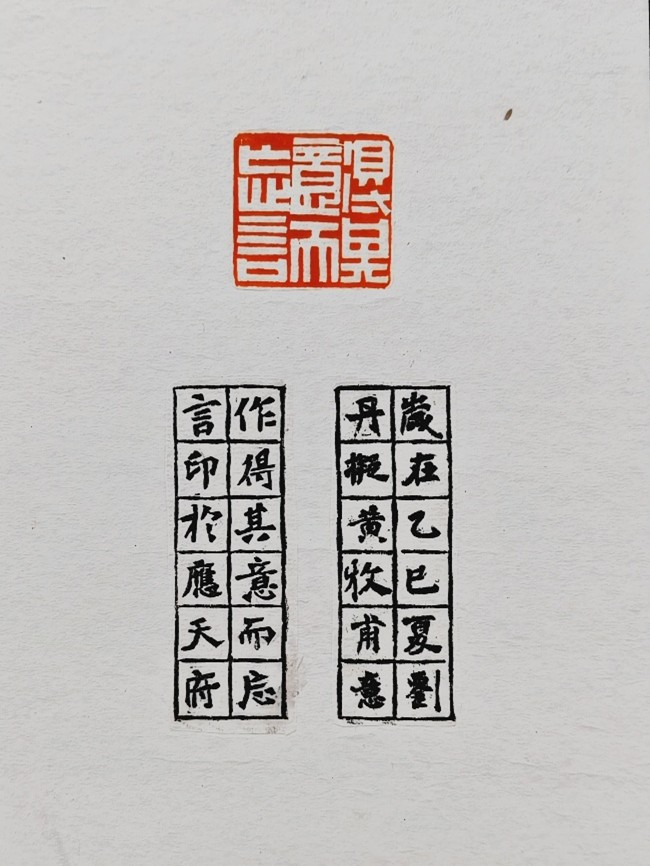 得其
意而
忘言
歲在乙巳夏劉
丹擬黄牧甫意
作得其意而忘
言印於應天府